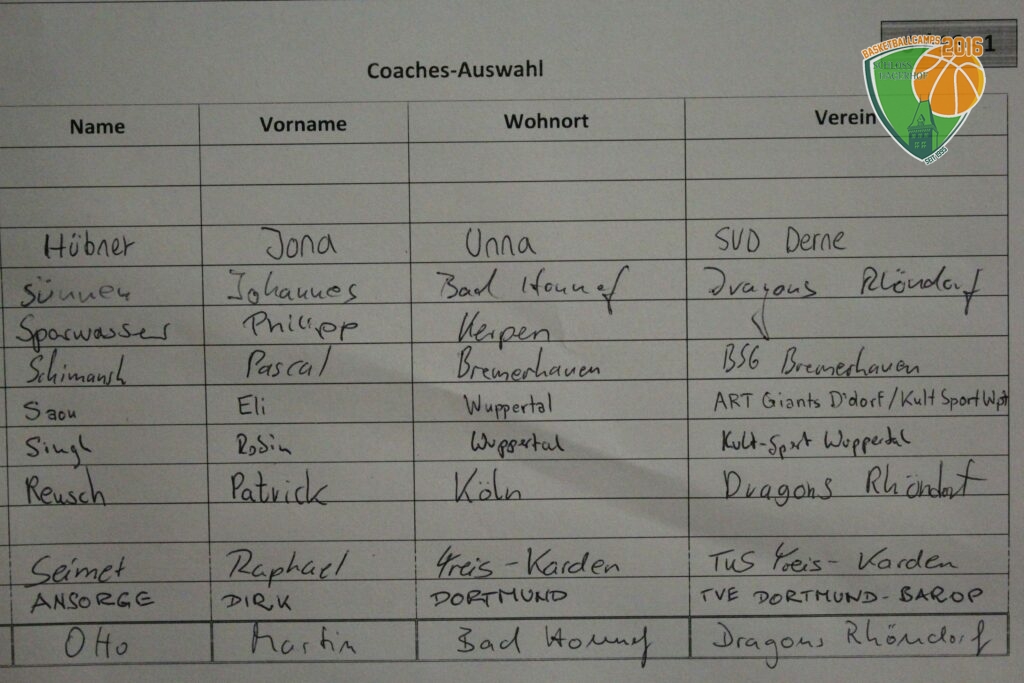 BASKETBALLCAMPS 2016
1
SCHLOSS HAGERHOF
Coaches-Auswahl
SEIT 1988
Name Vorname Wohnort Verein
Hübner Jona Unna SVD Derne
Sünnen Johannes Bad Honnef Dragons Rhöndorf
Sparwasser Philipp Kerpen
Schimansk Pascal Bremerhaven BSG Bremerhaven
Saou Eli Wuppertal ART Giants D'dorf/Kult Sport Wpt
Singh Robin Wuppertal Kult-Sport Wuppertal
Reusch Patrick Köln Dragons Rhöndorf
Seimet Raphael Treis-Karden TuS Treis-Karden
ANSORGE DIRK DORTMUND TVE DORTMUND-BAROP
Otto Martin Bad Honnef Dragons Rhöndorf